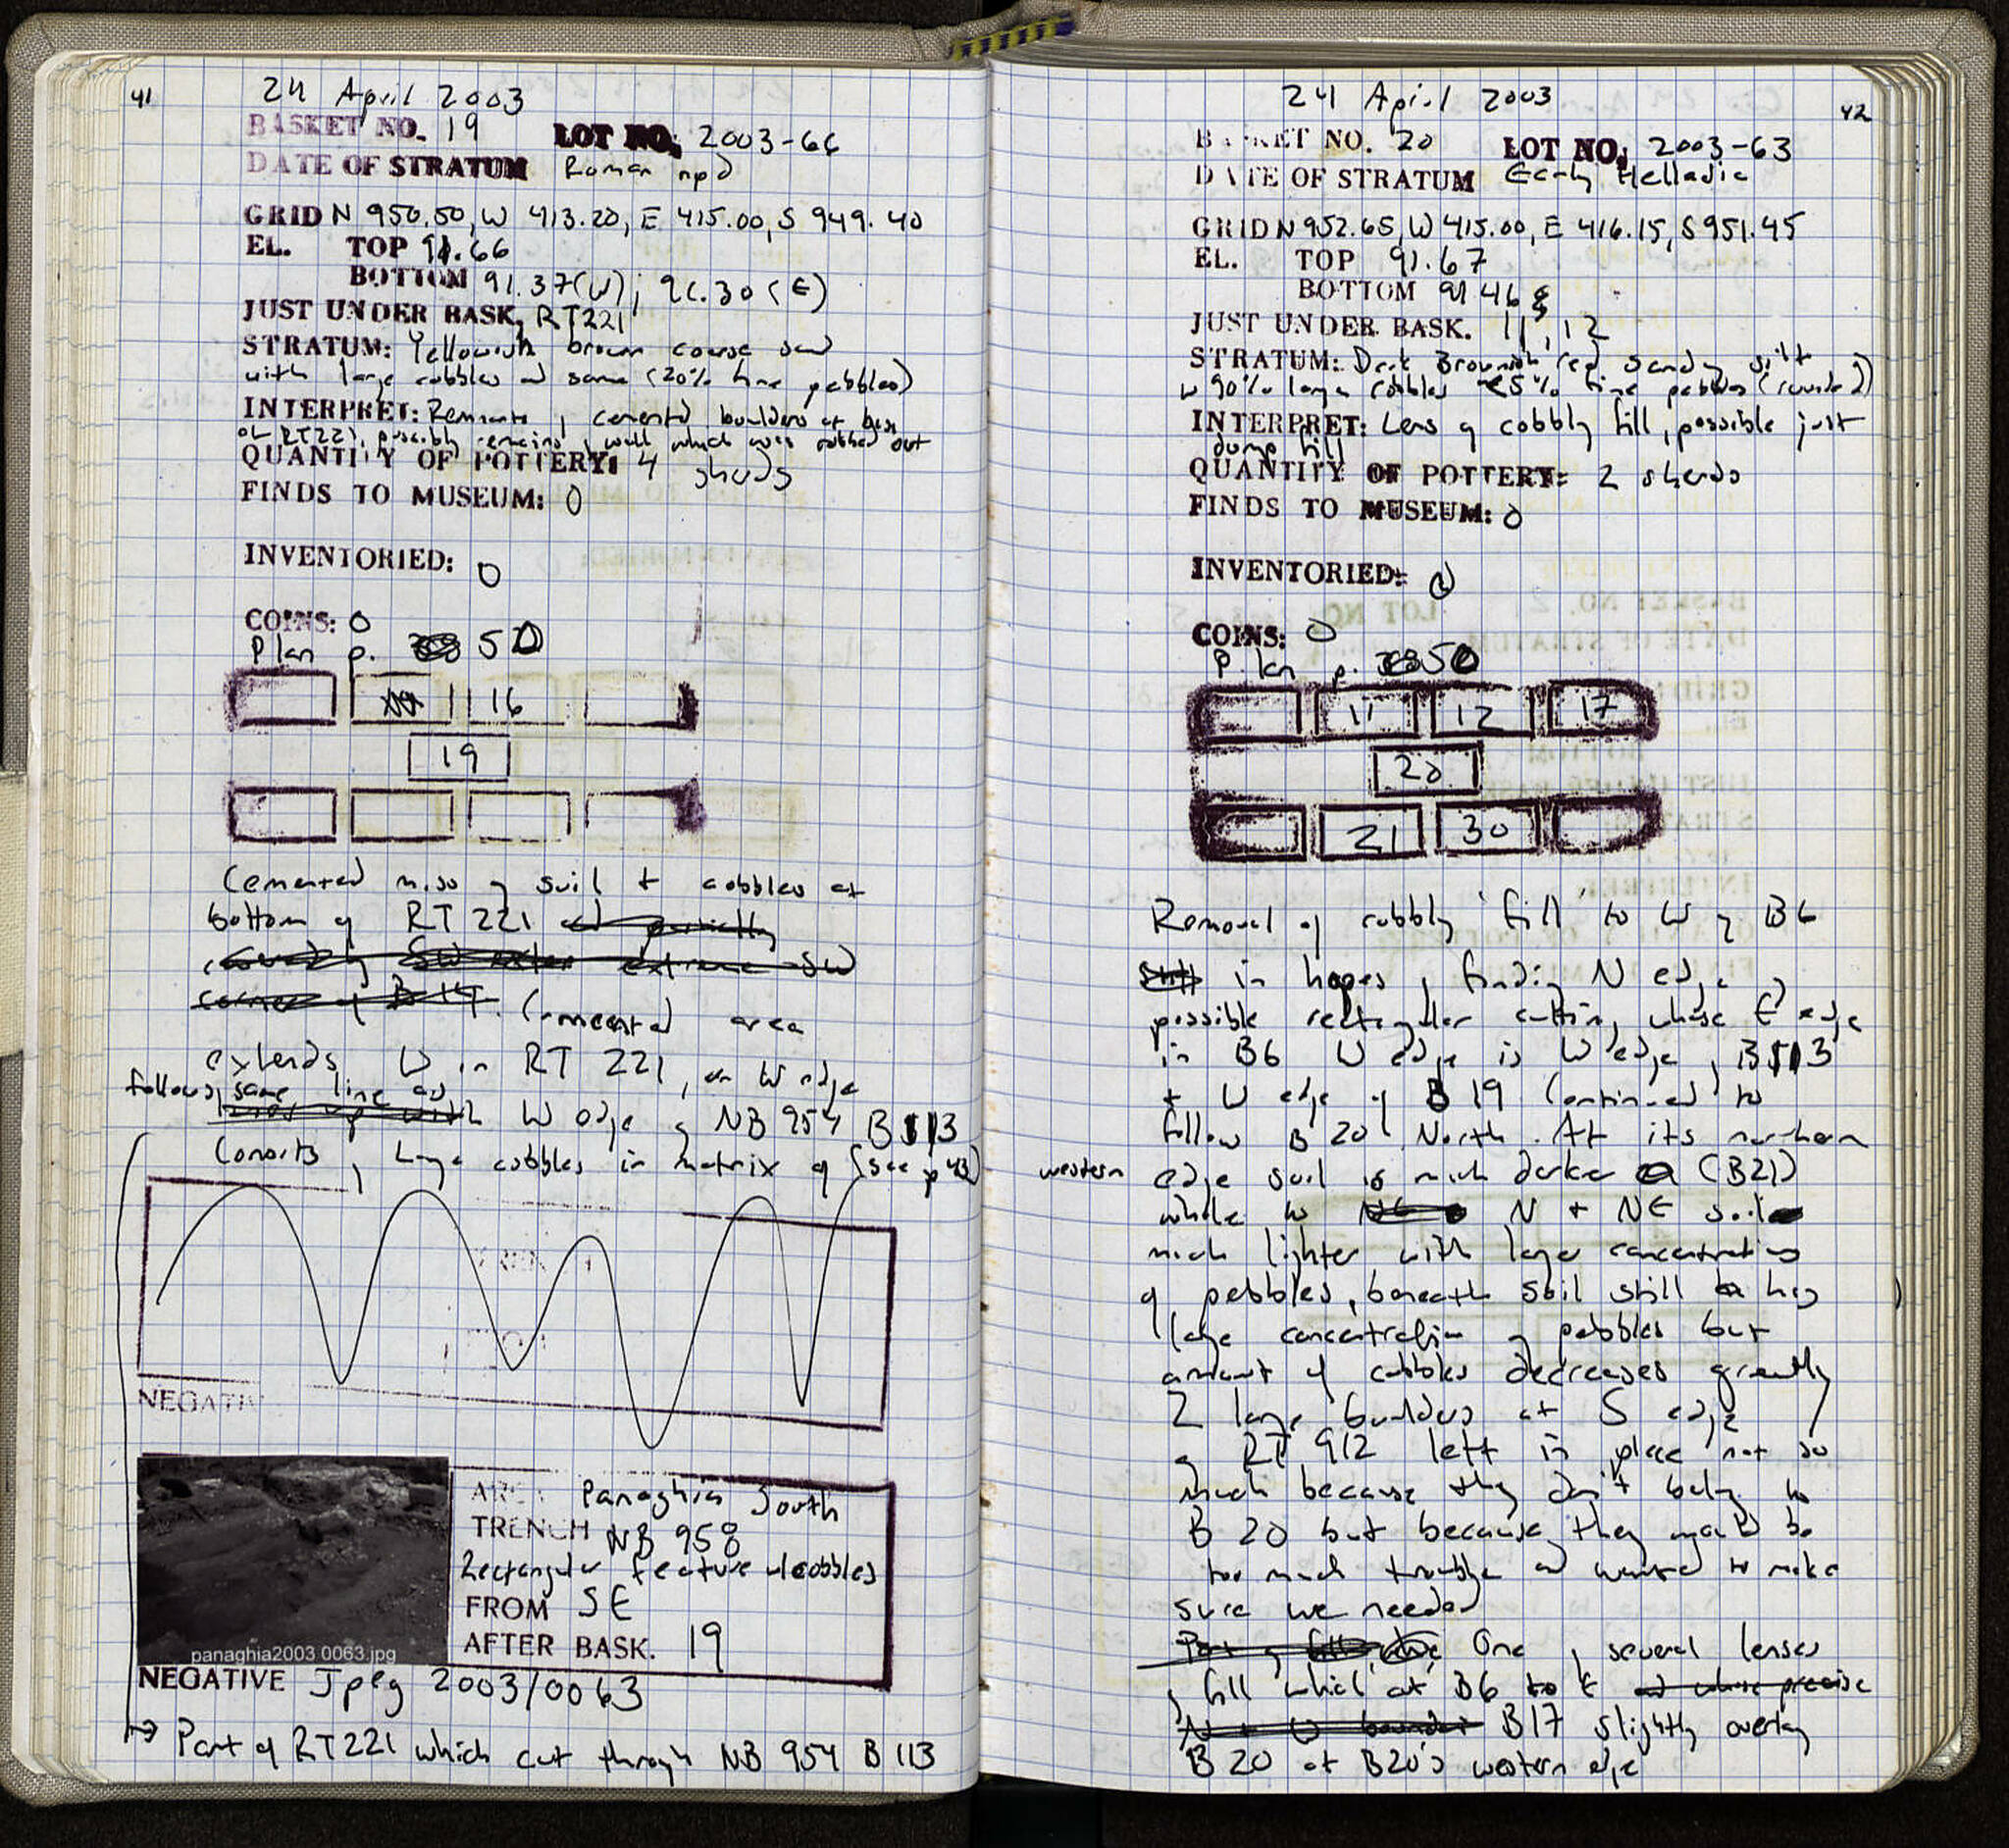 41
24 April 2003
BASKET NO. 19 LOT NO: 2003-66
DATE OF STRATUM Roman npd
GRID N 950.50, W 413.20, E 415.00, S 949.40
EL. TOP 91.66
BOTTOM 91.37(W); 91.30(E)
JUST UNDER BASK. RT221
STRATUM: Yellowish brown coarse sand
with large cobbles and some (20% fine pebbles)
INTERPRET: Remnants of cemented boulders at base
of RT221, possibly remains of wall which was robbed out
QUANTITY OF POTTERY: 4 sherds
FINDS TO MUSEUM: 0
INVENTORIED: 0
COINS: 0
Plan p. 50
16
19
Cemented mass of soil + cobbles at
bottom of RT 221
Cemented area
extends W in RT 221, on W edge
follows same line as
W edge of NB 954 B 113
Consists of large cobbles in matrix of (see p 43)
NEGATIV
panaghia2003 0063.jpg
AREA Panaghia South
TRENCH NB 958
Rectangular feature w/cobbles
FROM SE
AFTER BASK. 19
NEGATIVE Jpeg 2003/0063
→ Part of RT221 which cut through NB 954 B 113
42
24 April 2003
BASKET NO. 20 LOT NO: 2003-63
DATE OF STRATUM Early Helladic
GRID N 952.65, W 415.00, E 416.15, S 951.45
EL. TOP 91.67
BOTTOM 91.46
JUST UNDER BASK. 11, 12
STRATUM: Dark Brownish red sandy silt
w 90% large cobbles <5% fine pebbles (rounded)
INTERPRET: Lens of cobbly fill, possible just
dump fill
QUANTITY OF POTTERY: 2 sherds
FINDS TO MUSEUM: 0
INVENTORIED: 0
COINS: 0
Plan p. 50
11 12 17
20
21 30
Removal of cobbly 'fill' to W of B6
in hopes of finding N edge of
possible rectangular cutting whose E edge
in B6 W edge is W edge of B113
+ W edge of B 19 Continued to
follow B 20 North. At its northern
western edge soil is much darker (B21)
while to N + NE soil
much lighter with large concentrations
of pebbles, beneath soil still has
large concentration of pebbles but
amount of cobbles decreases greatly
2 large boulders at S edge
of RT 912 left in place not so
much because they don't belong to
B 20 but because they would be
too much trouble and wanted to make
sure we needed
One of several lenses
of fill which at B6 to E
B17 slightly overlay
B 20 at B20's western edge